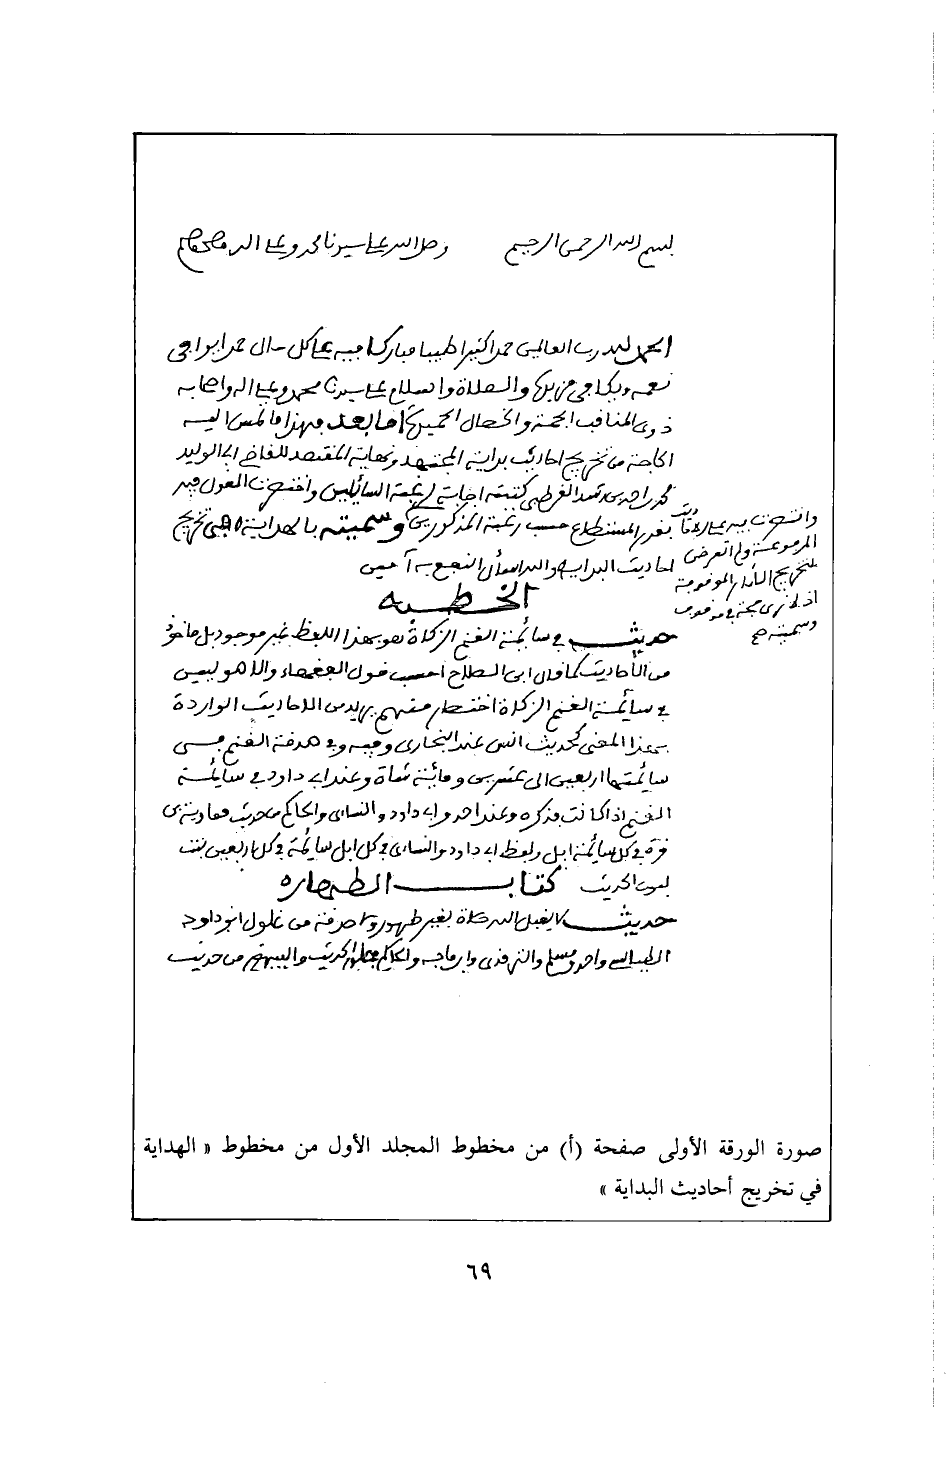 بسم الله الرحمن الرحيم وصلى الله على سيدنا محمد وعلى اله وصحبه
الحمد لله رب العالمين حمدا كثيرا طيبا مباركا فيه على كل حال حمدا يوافي
نعمه ويكافي مزيده والصلاة والسلام على سيدنا محمد وعلى اله واصحابه
ذوي المناقب الجمة والخصال الحميدة اما بعد فهذا ما لمس اليه
الحاجة من تخريج احاديث بداية المجتهد ونهاية المقتصد للقاضي ابي الوليد
محمد بن احمد بن رشد القرطبي كتبته اجابة لرغبة السائلين واختصرت القول فيه
بقدر المستطاع حسب رغبة المذكورين وسميته بالهداية في تخريج
احاديث البداية والله اسأل النفع به آمين
واقتصرت فيه على الاحاديث
المرفوعة ولم اتعرض
لتخريج الآثار الموقوفة
اذ لا نرى حجة في موقوف
وسميته صح
الخطبه
حديث في سائمة الغنم الزكاة هو بهذا اللفظ غير موجود بل ماخوذ
من الأحاديث كما قال ابن الصلاح احسب قول الفقهاء والاصوليين
في سائمة الغنم الزكاة اختصار منهم يريد من الاحاديث الواردة
بهذا المعنى كحديث انس عند البخاري وفيه وفي صدقة الغنم في
سائمتها اربعين الى عشرين ومائة شاة وعند ابي داود في سائمة
الغنم اذا كانت فذكره وعند احمد وابي داود والنسائي والحاكم من حديث معاوية بن
قرة في كل سائمة ابل ولفظ ابي داود والنسائي في كل ابل سائمة في كل اربعين بنت
لبون الحديث كتاب الطهاره
حديث لا يقبل الله صلاة بغير طهور ولا صدقة من غلول ابو داود
الطيالسي واحمد ومسلم والترمذي وابن ماجه والحاكم الحديث والبيهقي من حديث
صورة الورقة الأولى صفحة (أ) من مخطوط المجلد الأول من مخطوط « الهداية
في تخريج أحاديث البداية »
٦٩